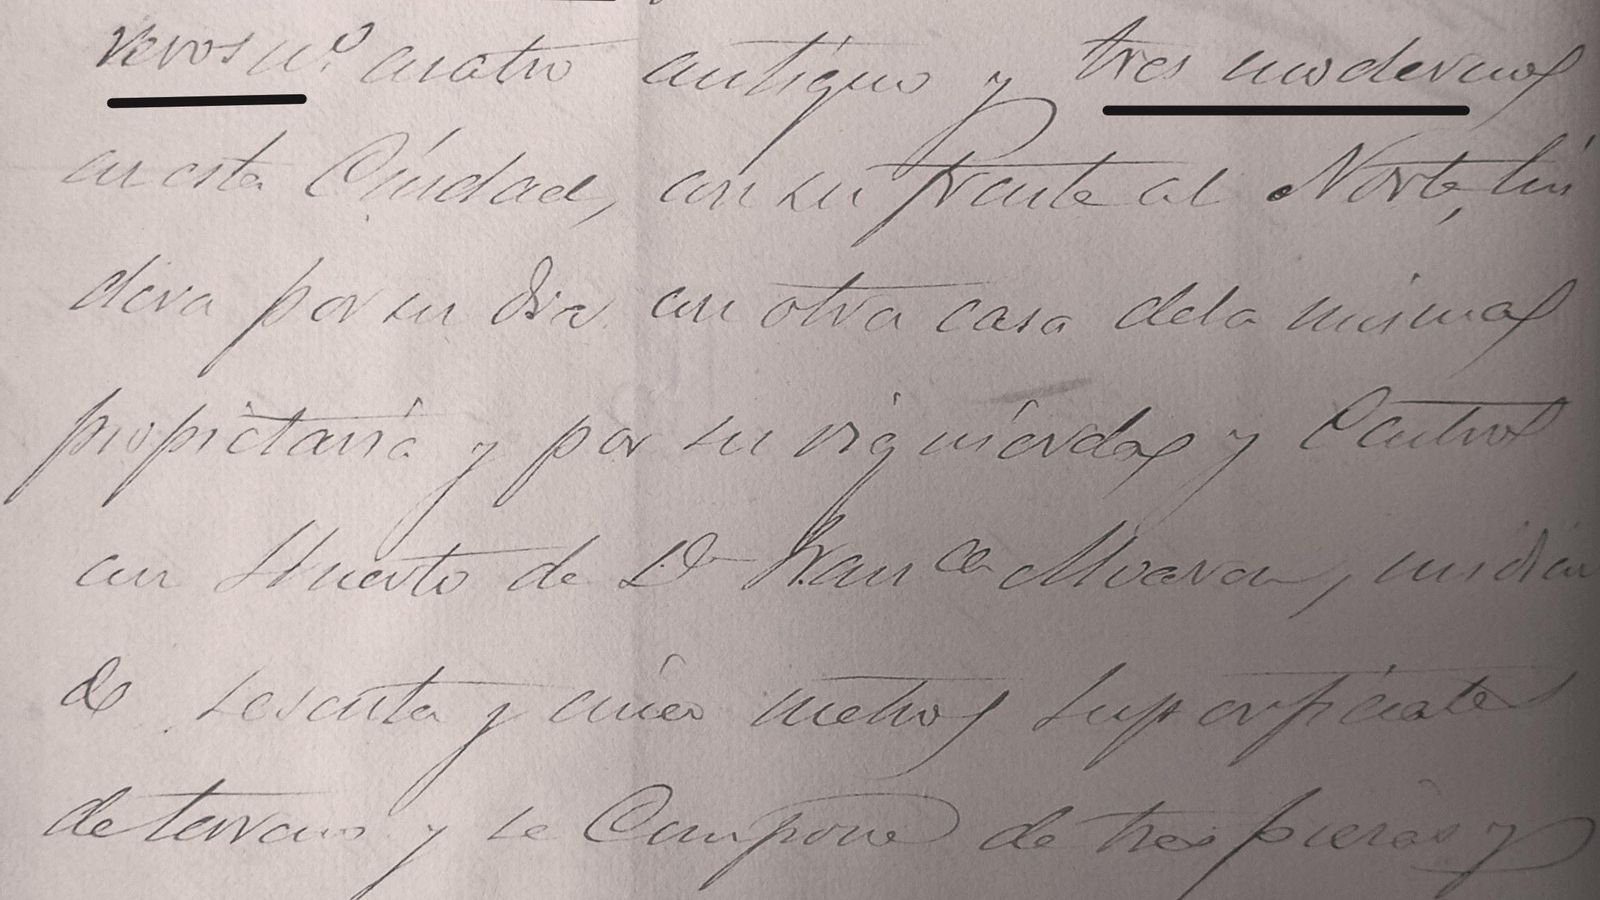 veros nº cuatro antiguo y tres moderno
en esta Ciudad, con su frente al Norte, lin
dera por su dra. con otra casa de la misma
propietaria y por su izquierda y Centro
con Huerto de Dn Franco Alvarez, midien
do sesenta y cinco metros superficiales
de terreno y se Compone de tres pieras y